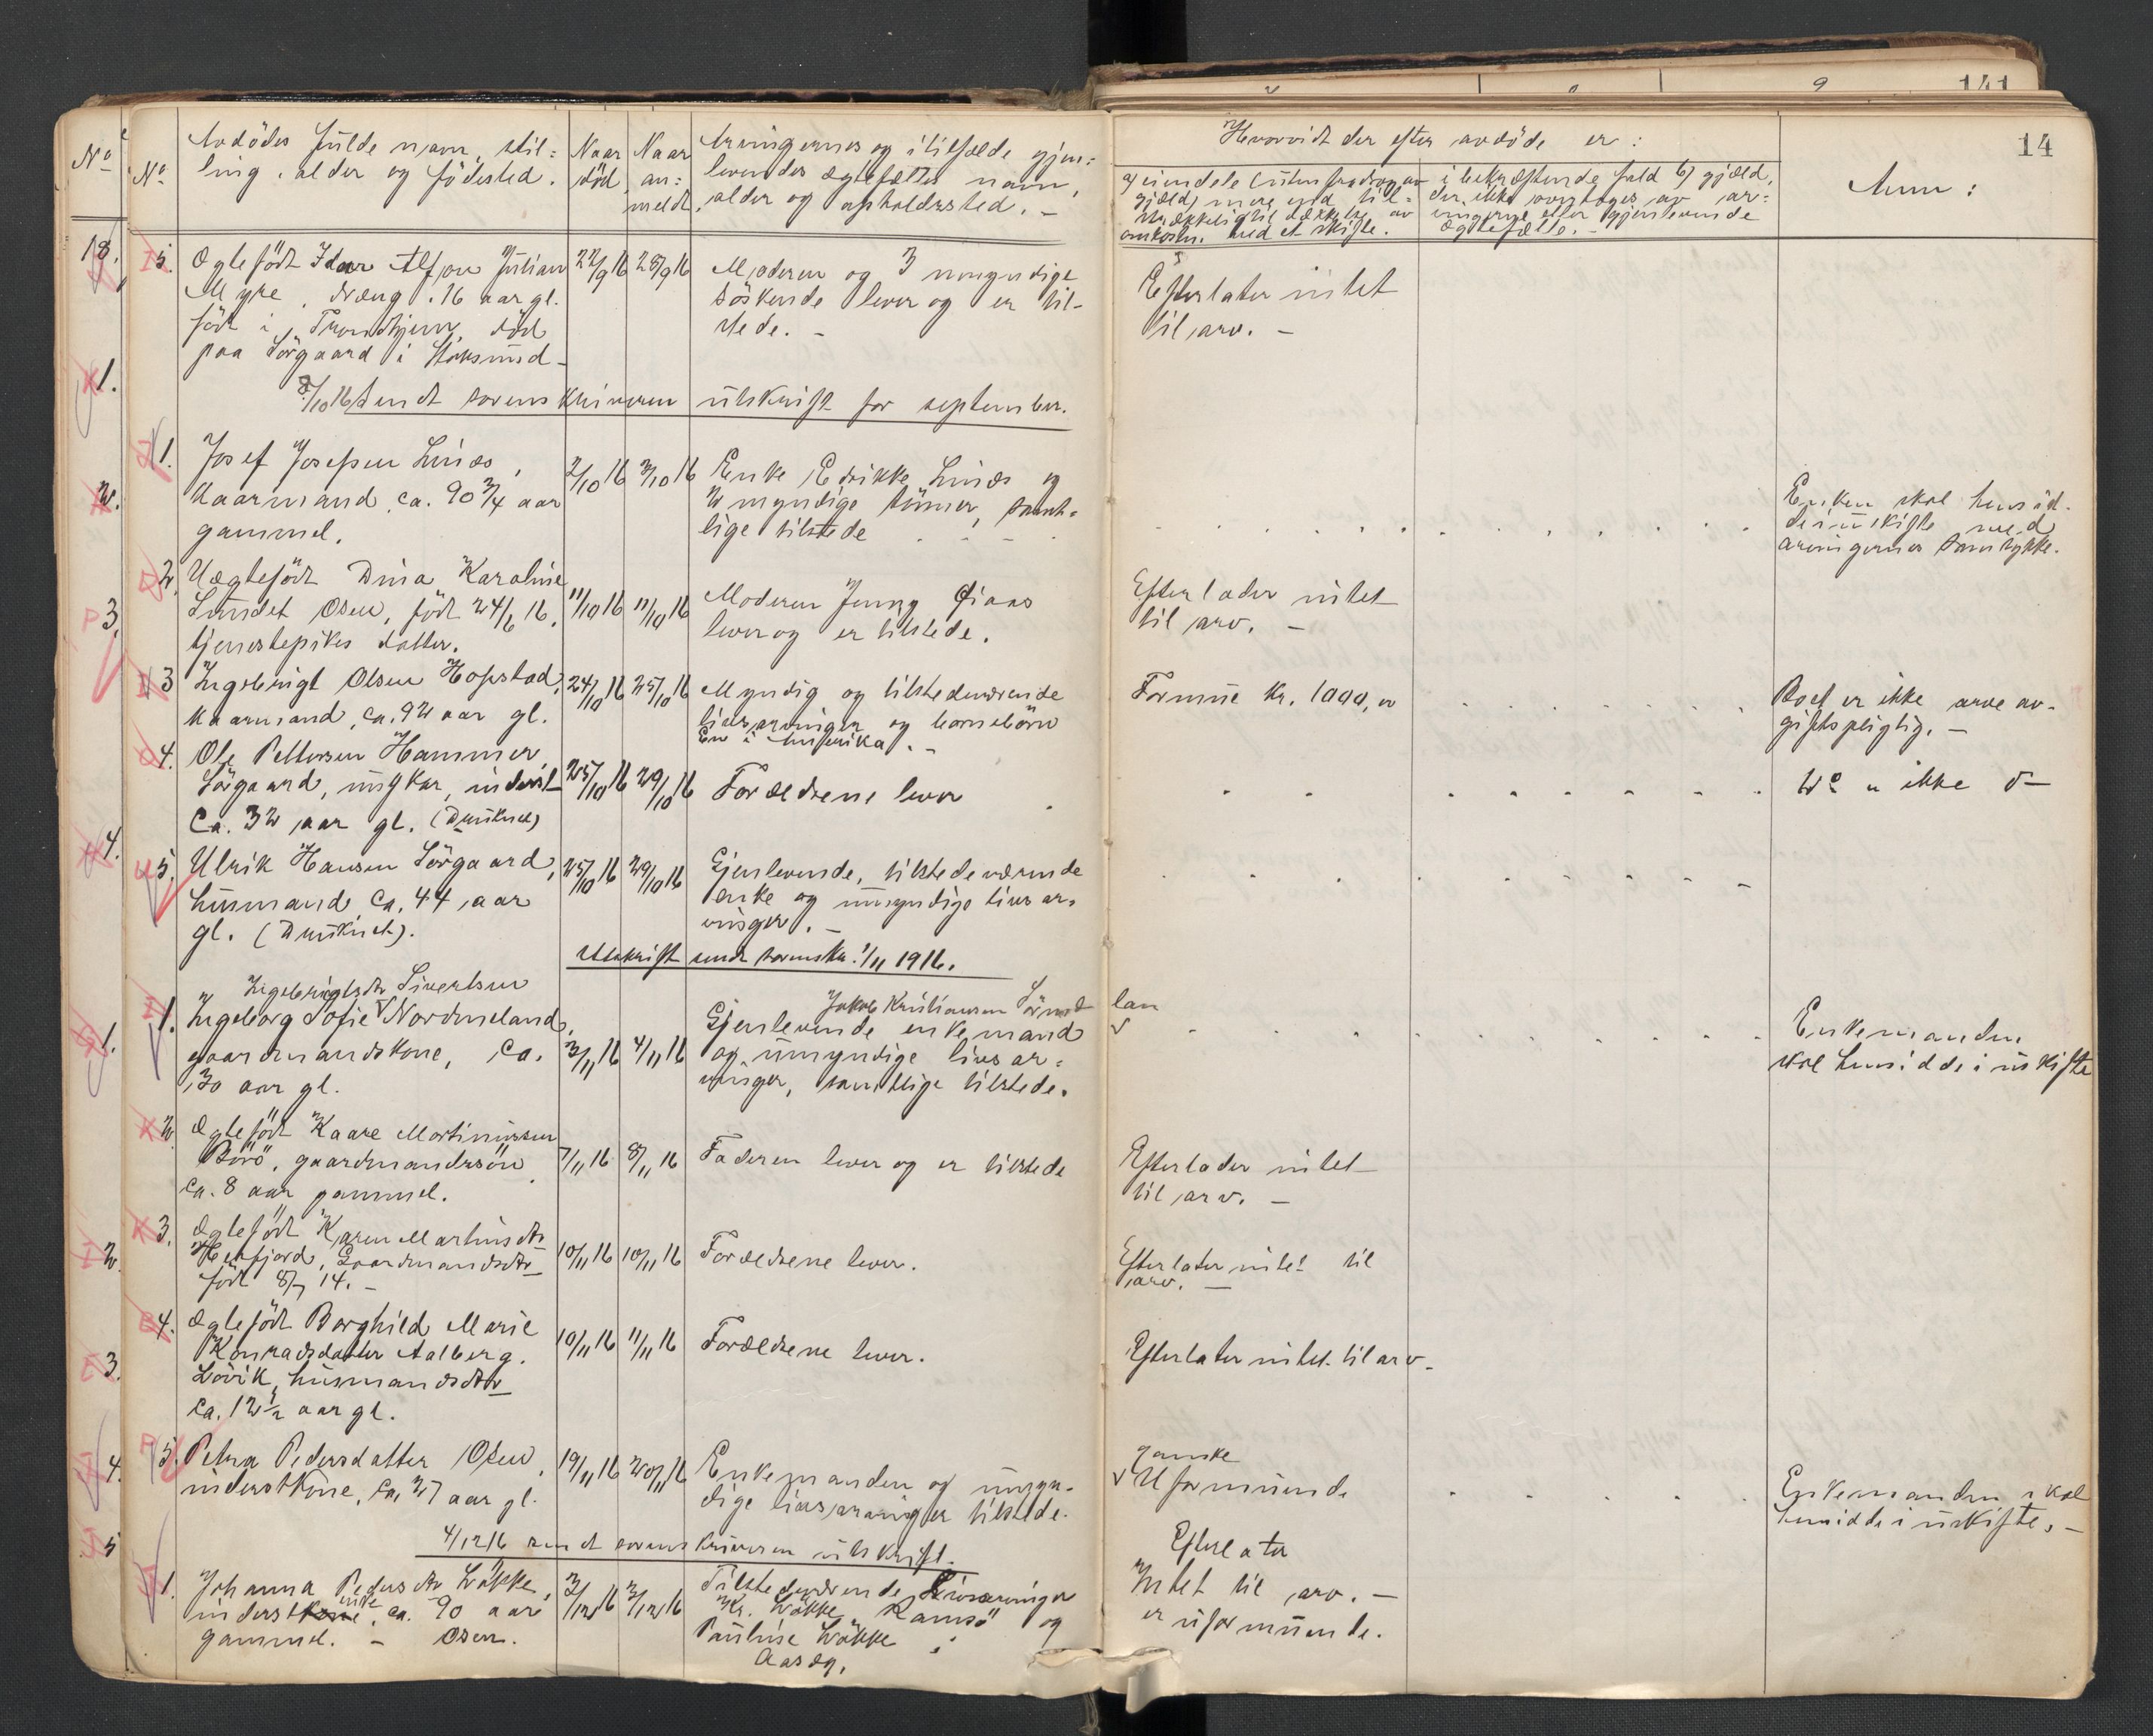 141
14
No
18.
1.
2.
3.
4.
1.
2.
3.
4.
5
No
Avdödes fulde navn, stil=
ling, alder og födested.
Naar
död
Naar
an=
meldt.
Arvingernes og i tilfælde gjen=
levendes ægtefælles navn,
alder og opholdssted. -
Hvorvidt der efter avdöde er:
a) eiendele (uten fradrag av
gjæld) mere end til=
strækkelig til dækkelse av
omkostn. ved et skifte.
i bekræftende fald b) gjæld,
der ikke overtages av ar=
vingerne eller gjenlevende
ægtefælle. -
Anm:
5. Ægtefödt Idar Alfon Julian
Myre, dreng, 16 aar gl.
födt i Trondhjem, död
paa Sörgaard i Stoksund -
22/9 16 28/9 16
Moderen og 3 umyndige
söskende lever og er til-
stede. -
Efterlater intet
til arv. -
8/10 16 sendt sorenskriveren utskrift for september.
1. Josef Josefsen Linæs,
kaarmand, ca. 90 3/4 aar
gammel.
2/10 16 3/10 16
Enke Edrikke Linæs og
2 myndige sönner, samt=
lige tilstede
Enken skal hensid-
de i uskifte med
arvingernes samtykke.
2. Uægtefödt Dina Karoline
Sundet Osen, födt 24/6 16,
tjenestepikes datter.
11/10 16 11/10 16
Moderen Jenny
lever og er tilstede.
Efterlader intet
til arv. -
3 Ingebrigt Olsen Hopstad,
kaarmand, ca. 92 aar gl.
24/10 16 25/10 16
Myndig og tilstedeværende
livsarvinger og barnebörn
En i Amerika. -
Formue kr. 1000,00
Boet er ikke arve av-
giftspligtig. -
4. Ole Pettersen Hammer,
Sörgaard, ungkar, inderst
ca. 32 aar gl. (Druknet)
25/10 16 29/10 16
Forældrene lever
ikke
5. Ulrik Hansen Sörgaard,
husmand, ca. 44 aar
gl. (Druknet).
25/10 16 29/10 16
Gjenlevende, tilstedeværende
enke og umyndige livsar=
vinger. -
Utskrift sendt sorenskr. 1/11 1916.
Ingebrigtsdtr Sivertsen
1. Ingeborg Sofie Nordmeland,
gaardmandskone, ca.
30 aar gl.
3/11 16 4/11 16
Jakob Kristiansen Sörmeland
Gjenlevende enkemand
og umyndige livsar=
vinger, samtlige tilstede.
Enkemanden
skal hensidde i uskifte
2 Ægtefödt Kaare Martinussen
Börö, gaardmandssön,
ca. 8 aar gammel.
7/11 16 8/11 16
Faderen lever og er tilstede
Efterlader intet
til arv. -
3. Ægtefödt Karen Martinsdtr
Hellfjord, Gaardmandsdtr
födt 8/7 14. -
10/11 16 10/11 16
Forældrene lever.
Efterlater intet til
arv. -
4. Ægtefödt Borghild Marie
Konradsdatter Aalberg.
Lövik, husmandsdtr
ca. 12 1/2 aar gl.
10/11 16 11/11 16
Forældrene lever.
Efterlater intet til arv -
5. Petra Pedersdatter Osen,
inderstkone, ca. 27 aar gl.
19/11 16 20/11 16
Enkemanden og umyn-
dige livsarvinger tilstede.
ganske
Uformuende
Enkemanden skal
hensidde i uskifte. -
4/12 16 sendt sorenskriveren utskrift.
1. Johanna Pedersdtr Vökke,
enke
inderstkone, ca. 90 aar
gammel. - Osen.
3/12 16 3/12 16
Tilstedeværende Livsarvinger
Kr. Vökke, Ramsö og
Pauline Vökke
Aasæg.
Efterlater
Intet til arv. -
er uformuende.